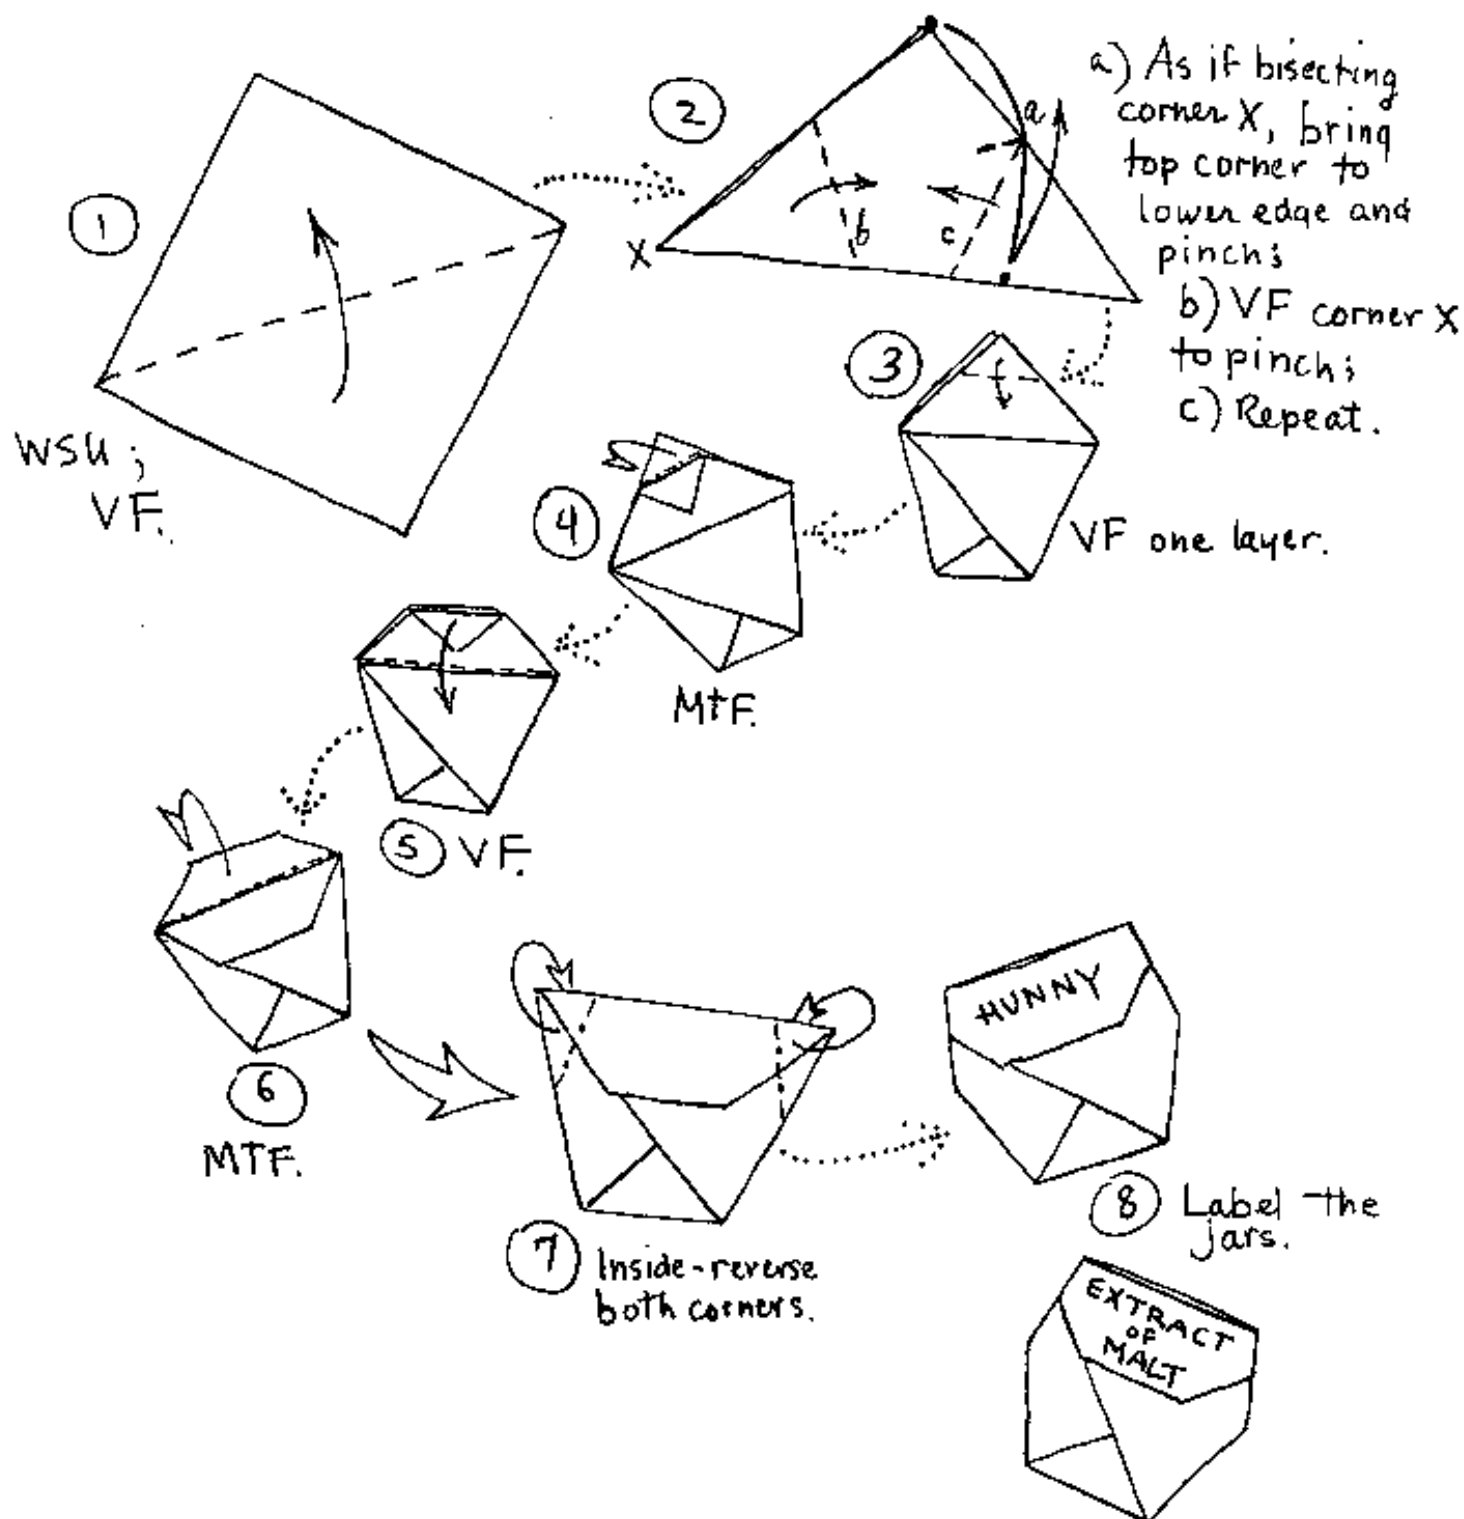 1
WSU;
VF.
2
X
a
b
c
a) As if bisecting
corner X, bring
top corner to
lower edge and
pinch;
b) VF corner X
to pinch;
c) Repeat.
3
VF one layer.
4
MTF.
5 VF.
6
MTF.
7 Inside-reverse
both corners.
HUNNY
8 Label the
jars.
EXTRACT
OF
MALT